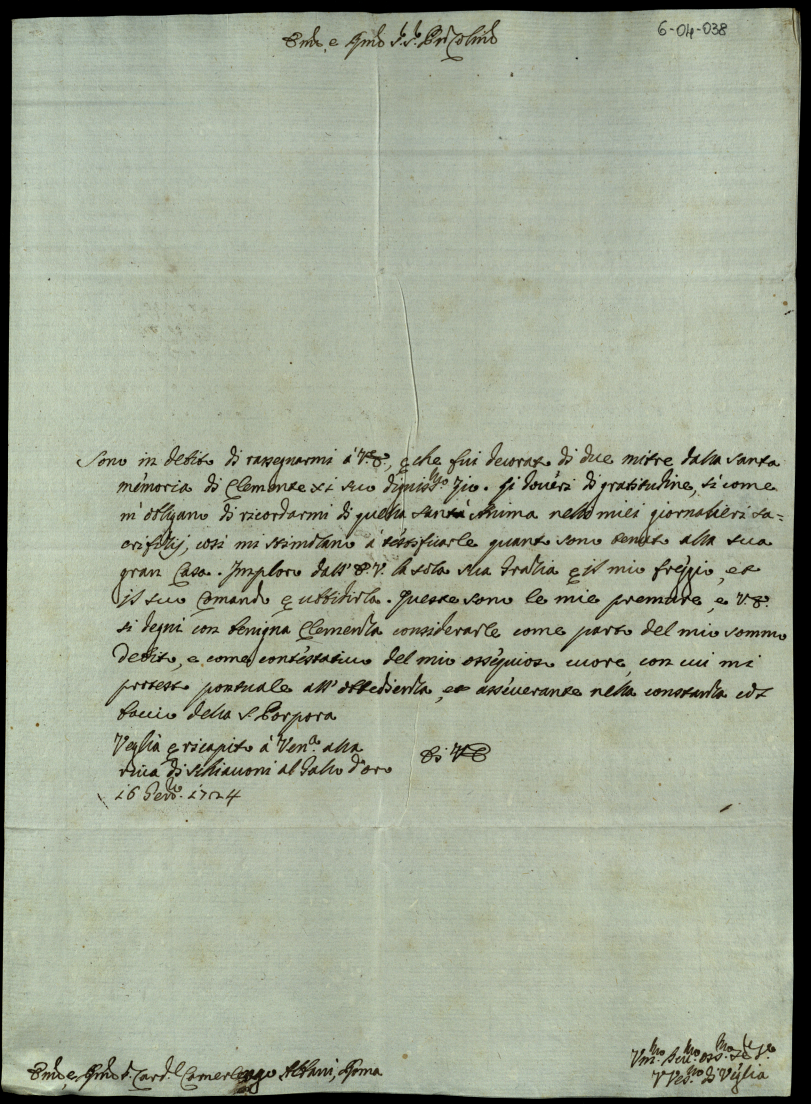 6-04-038
Em̃o, e Rm̃o S.r S.r Pn̄ Colm̃o
Sono in debito di rassegnarmi á V.E., p che fui decorato di due mitre dalla santa
memoria di Clemente XI suo digniss.mo Zio. Gi doveri di gratitudine, si come
m'obligano di ricordarmi di quella santa Anima nelli miei giornalieri sa=
crifitij, cosi mi stimolano á testificarle quanto sono tenuto alla sua
gran Casa. Imploro dall'E.V. la sola sua Gratia p il mio freggio, et
il suo Comando p ubbidirla. Queste sono le mie premure, e V.E.
si degni con benigna Clementia considerarle come parto del mio sommo
Debito, e come contestativo del mio ossequioso cuore, con cui mi
protesto pontuale all'obbedientia, et asseverante nella constantia col
baccio della S. Porpora
Veglia p ricapito á Ven.a alla
riva di Schiavoni al Gallo d'oro
Di V E
16 Feb.ro 1724
Em̃o e, Rm̃o S. Card.l Camerlengo Albani, Roma
Vm.mo Dev.mo oss.mo Se.re V.o
V Ves.vo di Veglia